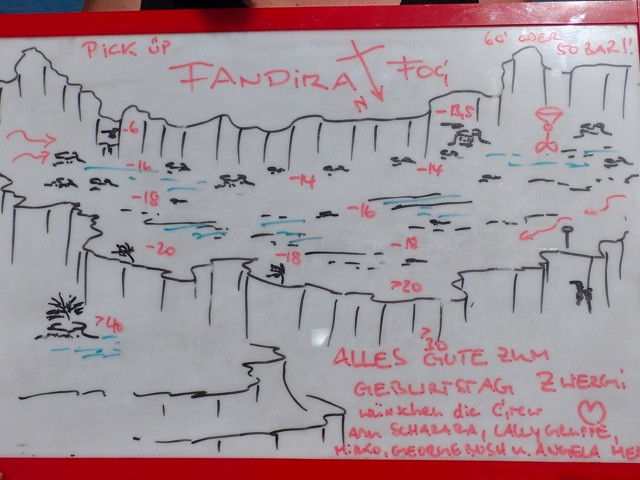 PICK ÜP
60' ODER
50 BAR!!
FANDIRA FOG
N
-6
-13,5
-16
-14
-14
-18
-16
-20
-18
-18
>20
>40
>30
ALLES GUTE ZUM
GEBURTSTAG ZWERGI
wünschen die Crew
SCHARARA, LALLYGRUPPE,
MIRKO, GEORGE BUSH u. ANGELA MER